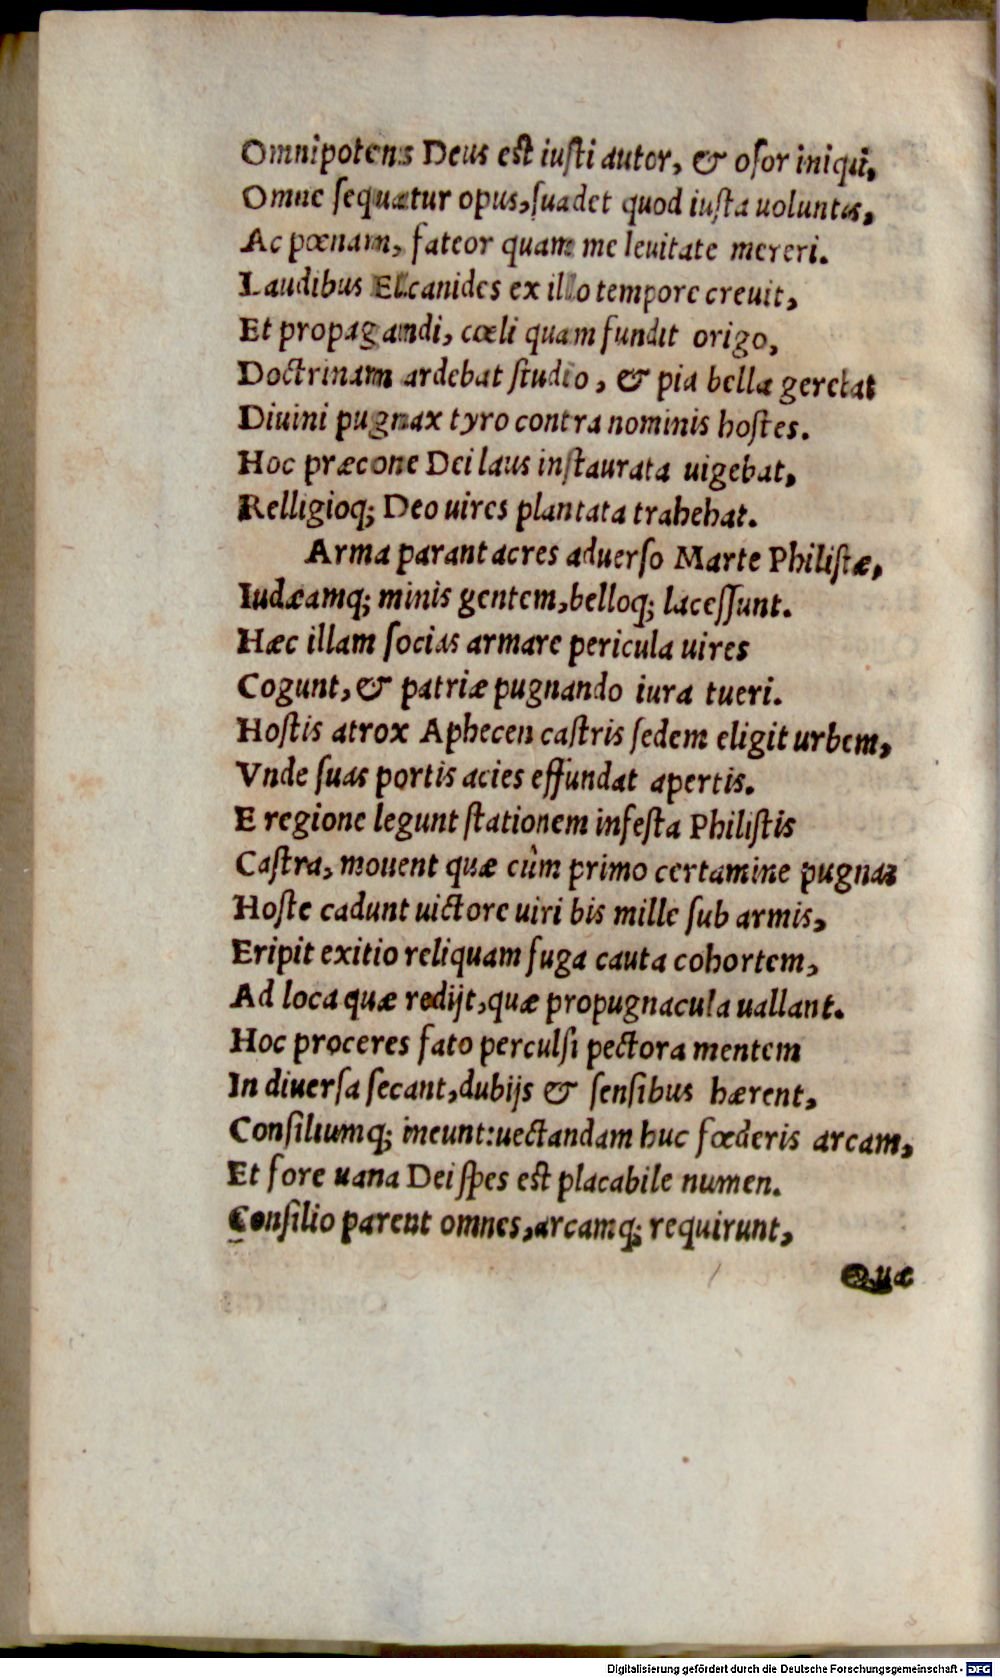 Omnipotens Deus est iusti autor, & osor iniqui,
Omne sequatur opus, suadet quod iusta uoluntas,
Ac pœnam, fateor quam me leuitate mereri.
Laudibus Elcanides ex illo tempore creuit,
Et propagandi, cœli quam fundit origo,
Doctrinam ardebat studio, & pia bella gerebat
Diuini pugnax tyro contra nominis hostes.
Hoc præcone Dei laus instaurata uigebat,
Relligioq; Deo uires plantata trahebat.
Arma parant acres aduerso Marte Philistæ,
Iudæamq; minis gentem, belloq; lacessunt.
Hæc illam socias armare pericula uires
Cogunt, & patriæ pugnando iura tueri.
Hostis atrox Aphecen castris sedem eligit urbem,
Vnde suas portis acies effundat apertis.
E regione legunt stationem infesta Philistis
Castra, mouent quæ cûm primo certamine pugnas
Hoste cadunt uictore uiri bis mille sub armis,
Eripit exitio reliquam fuga cauta cohortem,
Ad loca quæ redijt, quæ propugnacula uallant.
Hoc proceres fato perculsi pectora mentem
In diuersa secant, dubijs & sensibus hærent,
Consiliumq; ineunt: uectandam huc fœderis arcam,
Et fore uana Dei spes est placabile numen.
Consilio parent omnes, arcamq; requirunt,
Quæ
Digitalisierung gefördert durch die Deutsche Forschungsgemeinschaft - DFG